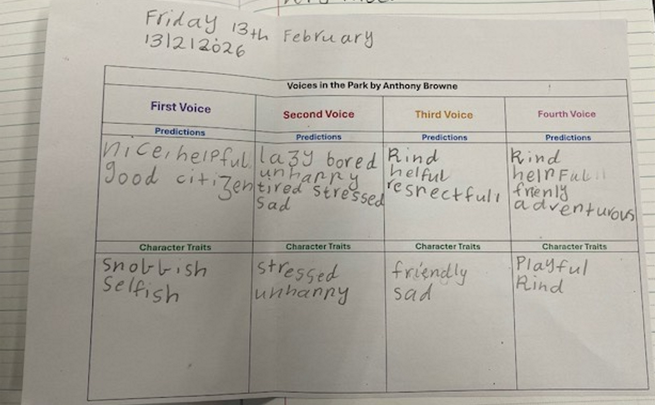 Friday 13th February
13/2/2026
Voices in the Park by Anthony Browne
First Voice
Second Voice
Third Voice
Fourth Voice
Predictions
Predictions
Predictions
Predictions
nice, helpful
good citizen
lazy bored
unhappy
tired stressed
sad
kind
helful
respectfull
kind
helpful
frienly
adventurous
Character Traits
Character Traits
Character Traits
Character Traits
snobbish
selfish
stressed
unhappy
friendly
sad
Playful
kind